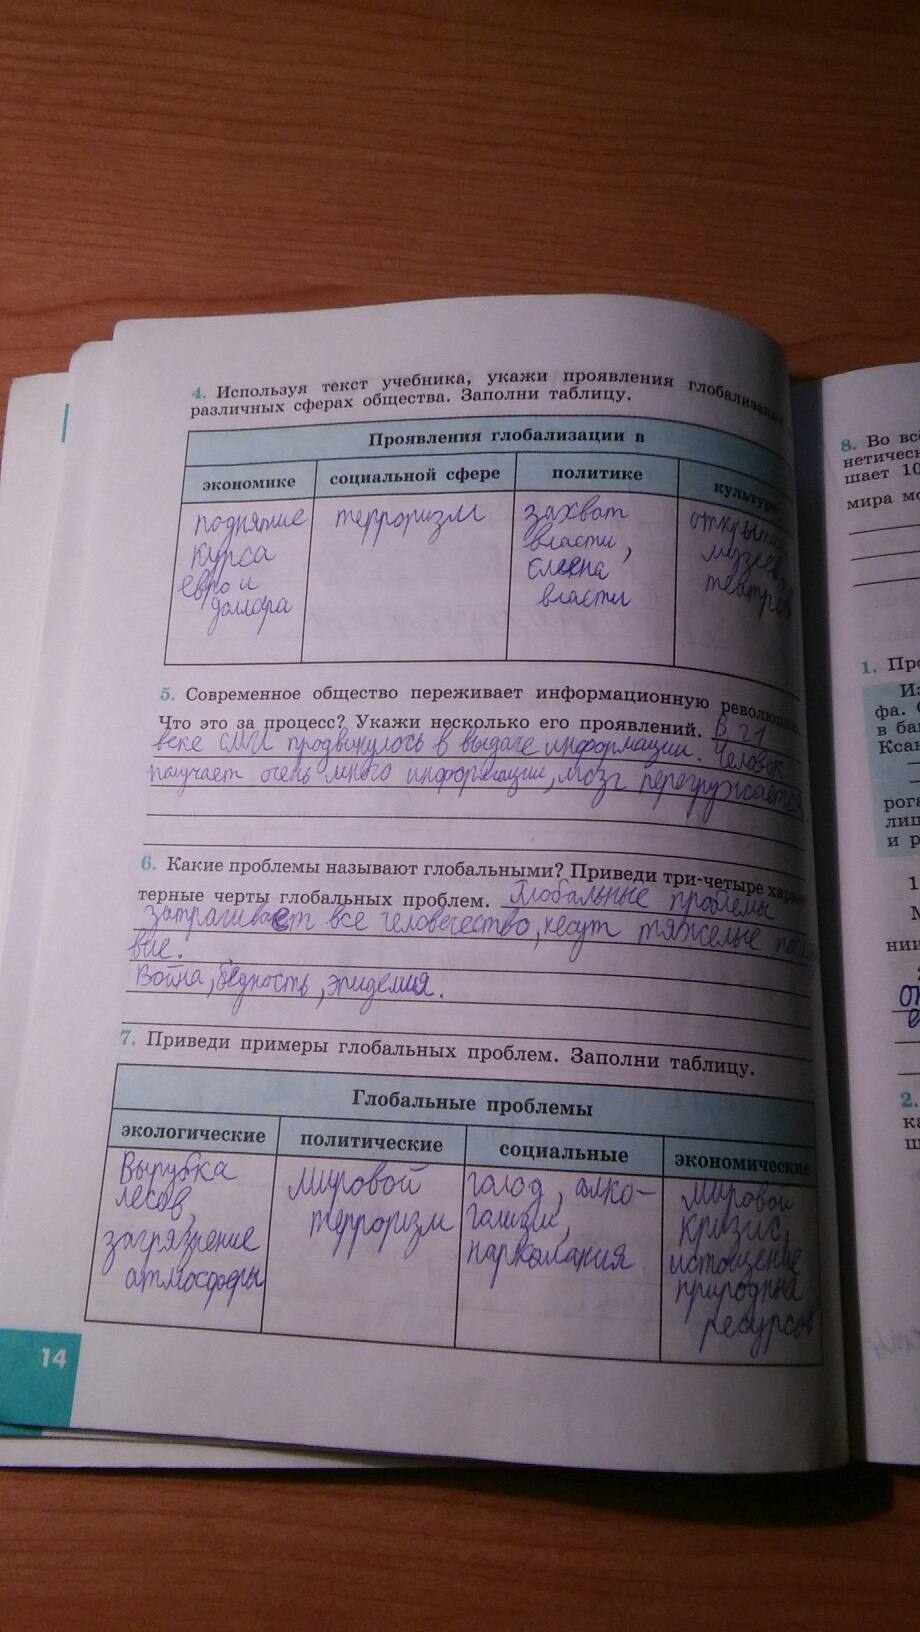 4. Используя текст учебника, укажи проявления глобализации
различных сферах общества. Заполни таблицу.
Проявления глобализации в
экономике социальной сфере политике культуре
поднятие
курса
евро и
доллара
терроризм
захват
власти,
смена
власти
открытие
музеев,
театров
5. Современное общество переживает информационную
Что это за процесс? Укажи несколько его проявлений. В 21
веке СМИ продвинулось в выдаче информации. Человек
получает очень много информации, мозг перегружается.
6. Какие проблемы называют глобальными? Приведи три-четыре харак-
терные черты глобальных проблем. Глобальные проблемы
затрагивает все человечество, несут тяжелые
Война, бедность, эпидемия.
7. Приведи примеры глобальных проблем. Заполни таблицу.
Глобальные проблемы
экологические политические социальные экономические
Вырубка
лесов,
загрязнение
атмосферы
мировой
терроризм
голод, алко-
голизм,
наркомания
мировой
кризис,
истощение
ресурсов
14
8. Во
шает 10
мира
1.
в
и
2.